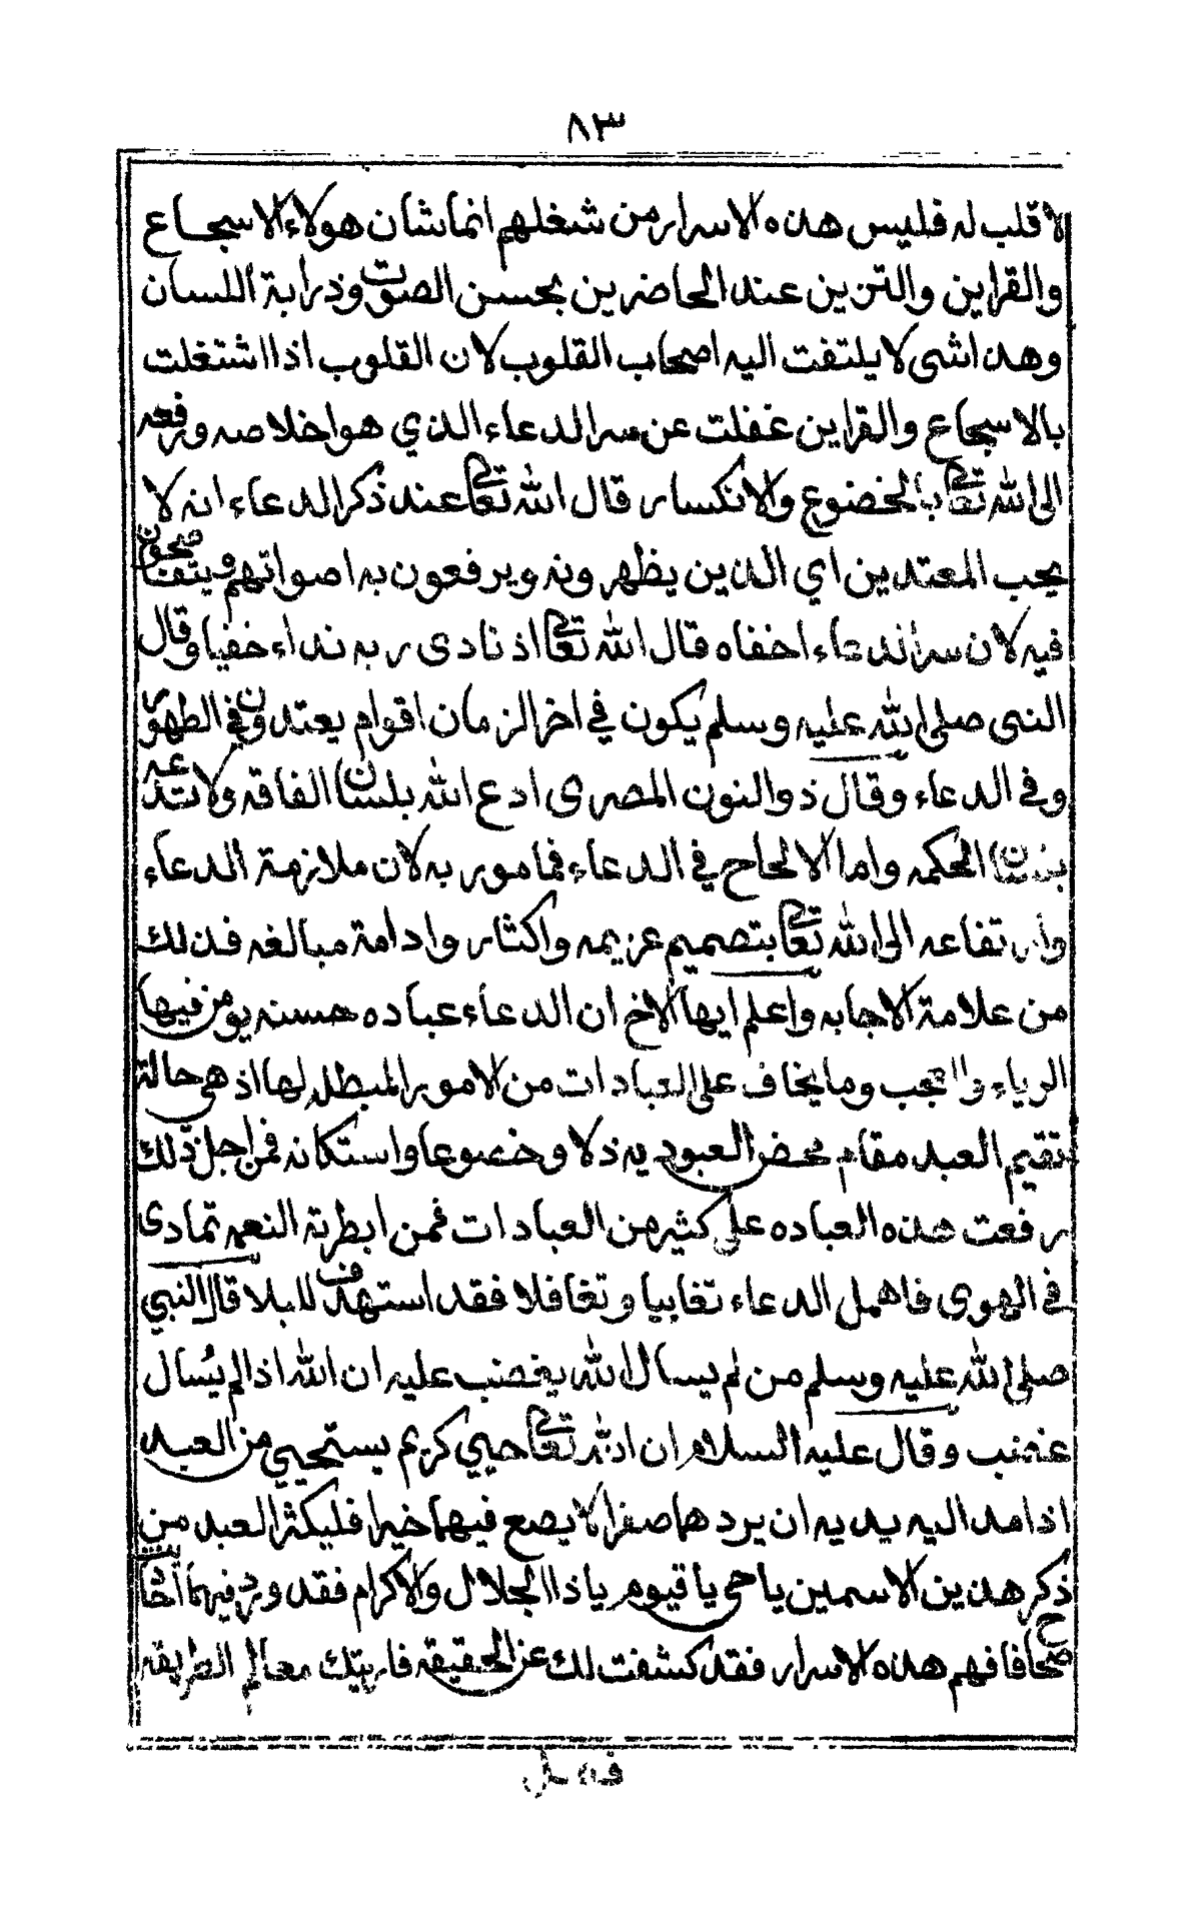 ٨٣
لا قلب له فليس هذه الاسرار من شغلهم انما شان هولاء الاسجاع
والقراين والتزين عند الحاضرين بحسن الصوت وذرابة اللسان
وهذا شى لا يلتفت اليه اصحاب القلوب لان القلوب اذا اشتغلت
بالاسجاع والقراين غفلت عن سر الدعاء الذي هو اخلاصه ورفعه
الى الله تعالى بالخضوع والانكسار قال الله تعالى عند ذكر الدعاء انه لا
يحب المعتدين اي الذين يظهرونه ويرفعون به اصواتهم ويتفاصحون
فيه لان سر الدعاء اخفاه قال الله تعالى اذ نادى ربه نداء خفيا وقال
النبى صلى الله عليه وسلم يكون في اخر الزمان اقوام يعتدون في الطهور
وفي الدعاء وقال ذوالنون المصرى ادع الله بلسان الفاقه ولا تدعه
بلسان الحكمه واما الالحاح في الدعاء فمامور به لان ملازمة الدعاء
وارتفاعه الى الله تعالى بتصميم عزيمه واكثار وادامة مبالغه فذلك
من علامة الاجابه واعلم ايها الاخ ان الدعاء عباده حسنه يومن فيها
الرياء والعجب وما يخاف على العبادات من الامور المبطله لها اذ هى حالة
تقيم العبد مقام محض العبوديه ذلا وخضوعا واستكانه فمن اجل ذلك
رفعت هذه العباده على كثير من العبادات فمن ابطرته النعمه تمادى
في الهوى فاهمل الدعاء تغابيا وتغافلا فقد استهدف للبلا قال النبي
صلى الله عليه وسلم من لم يسال الله يغضب عليه ان الله اذا لم يُسال
غضب وقال عليه السلام ان الله تعالى حيي كريم يستحيي من العبد
اذا مد اليه يديه ان يردهما صفرا لا يضع فيهما خيرا فليكثر العبد من
ذكر هذين الاسمين ياحى يا قيوم ياذا الجلال والاكرام فقد ورد فيهما احاديث
صحاح فافهم هذه الاسرار فقد كشفت لك عن الحقيقه فاريتك معالم الطريقه
فصل